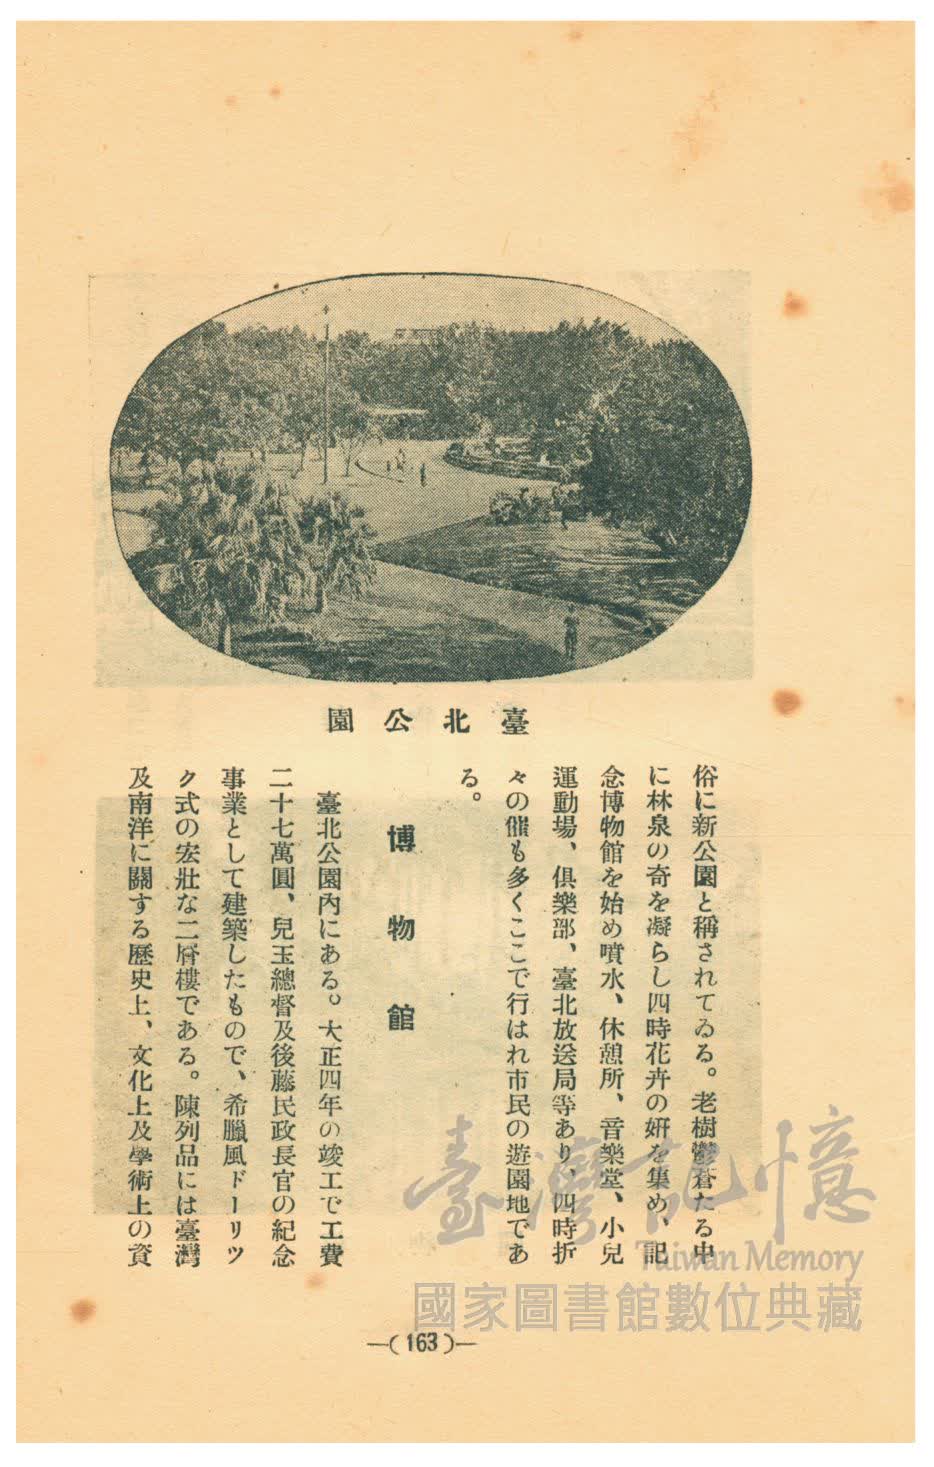 臺北公園
俗に新公園と稱されてゐる。老樹鬱蒼たる中
に林泉の奇を凝らし四時花卉の姸を集め、記
念博物館を始め噴水、休憩所、音樂堂、小兒
運動場、俱樂部、臺北放送局等あり、四時折
々の催も多くここで行はれ市民の遊園地であ
る。
博物館
臺北公園內にある。大正四年の竣工で工費
二十七萬圓、兒玉總督及後藤民政長官の紀念
事業として建築したもので、希臘風ドーリッ
ク式の宏壯な二層樓である。陳列品には臺灣
及南洋に關する歷史上、文化上及學術上の資
—(163)—
臺灣記憶
Taiwan Memory
國家圖書館數位典藏